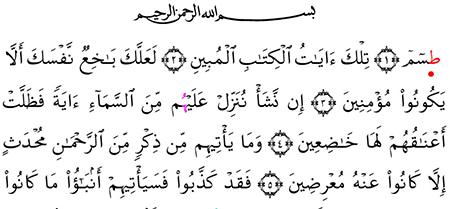 بسم الله الرحمن الرحيم
طسٓمٓ ﴿١﴾ تِلْكَ ءَايَٰتُ ٱلْكِتَٰبِ ٱلْمُبِينِ ﴿٢﴾ لَعَلَّكَ بَٰخِعٌ نَّفْسَكَ أَلَّا
يَكُونُوا۟ مُؤْمِنِينَ ﴿٣﴾ إِن نَّشَأْ نُنَزِّلْ عَلَيْهِم مِّنَ ٱلسَّمَآءِ ءَايَةً فَظَلَّتْ
أَعْنَٰقُهُمْ لَهَا خَٰضِعِينَ ﴿٤﴾ وَمَا يَأْتِيهِم مِّن ذِكْرٍ مِّنَ ٱلرَّحْمَٰنِ مُحْدَثٍ
إِلَّا كَانُوا۟ عَنْهُ مُعْرِضِينَ ﴿٥﴾ فَقَدْ كَذَّبُوا۟ فَسَيَأْتِيهِمْ أَنۢبَٰٓؤُا۟ مَا كَانُوا۟